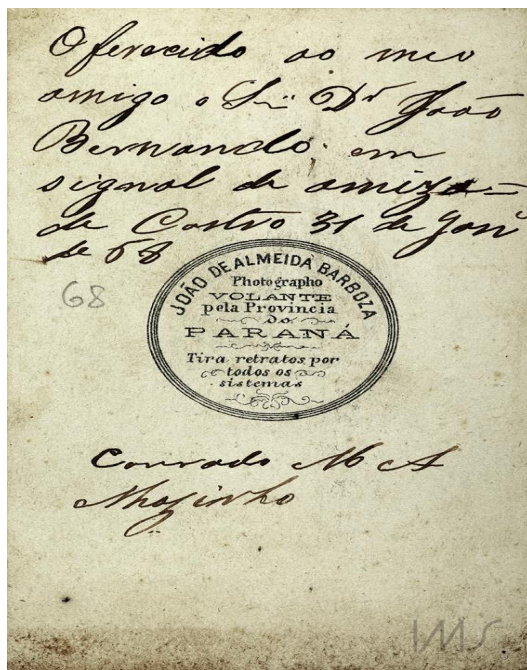 Oferecido ao meo
amigo o Snr Dr João
Bernando em
signal de amiza=
de Castro 31 de Janº
de 68
68
JOÃO DE ALMEIDA BARBOZA
Photographo
VOLANTE
pela Provincia
do
PARANÁ
Tira retratos por
todos os
sistemas
Conrado M A
IMS